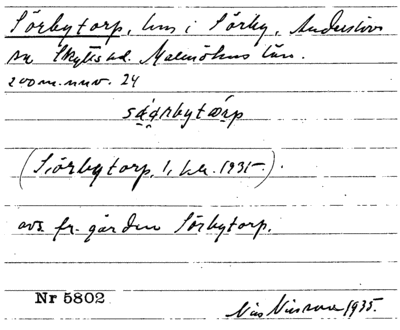 Sörbytorp, hus i Sörby, Anderslövs
sn Skytts hd. Malmöhus län.
200 m. nnv. 24
(Sörbytorp, 1, kr. 1935.).
avs. fr. gården Sörbytorp.
Nr 5802 Nils Nilsson 1935.